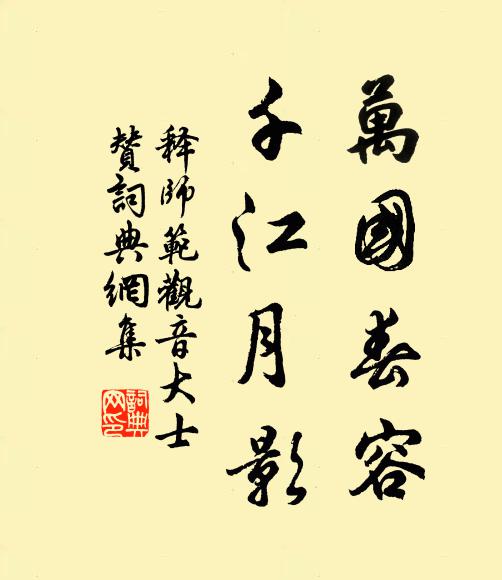 萬國春容
千江月影
释師範觀音大士
贊詞典網集
詞典网印